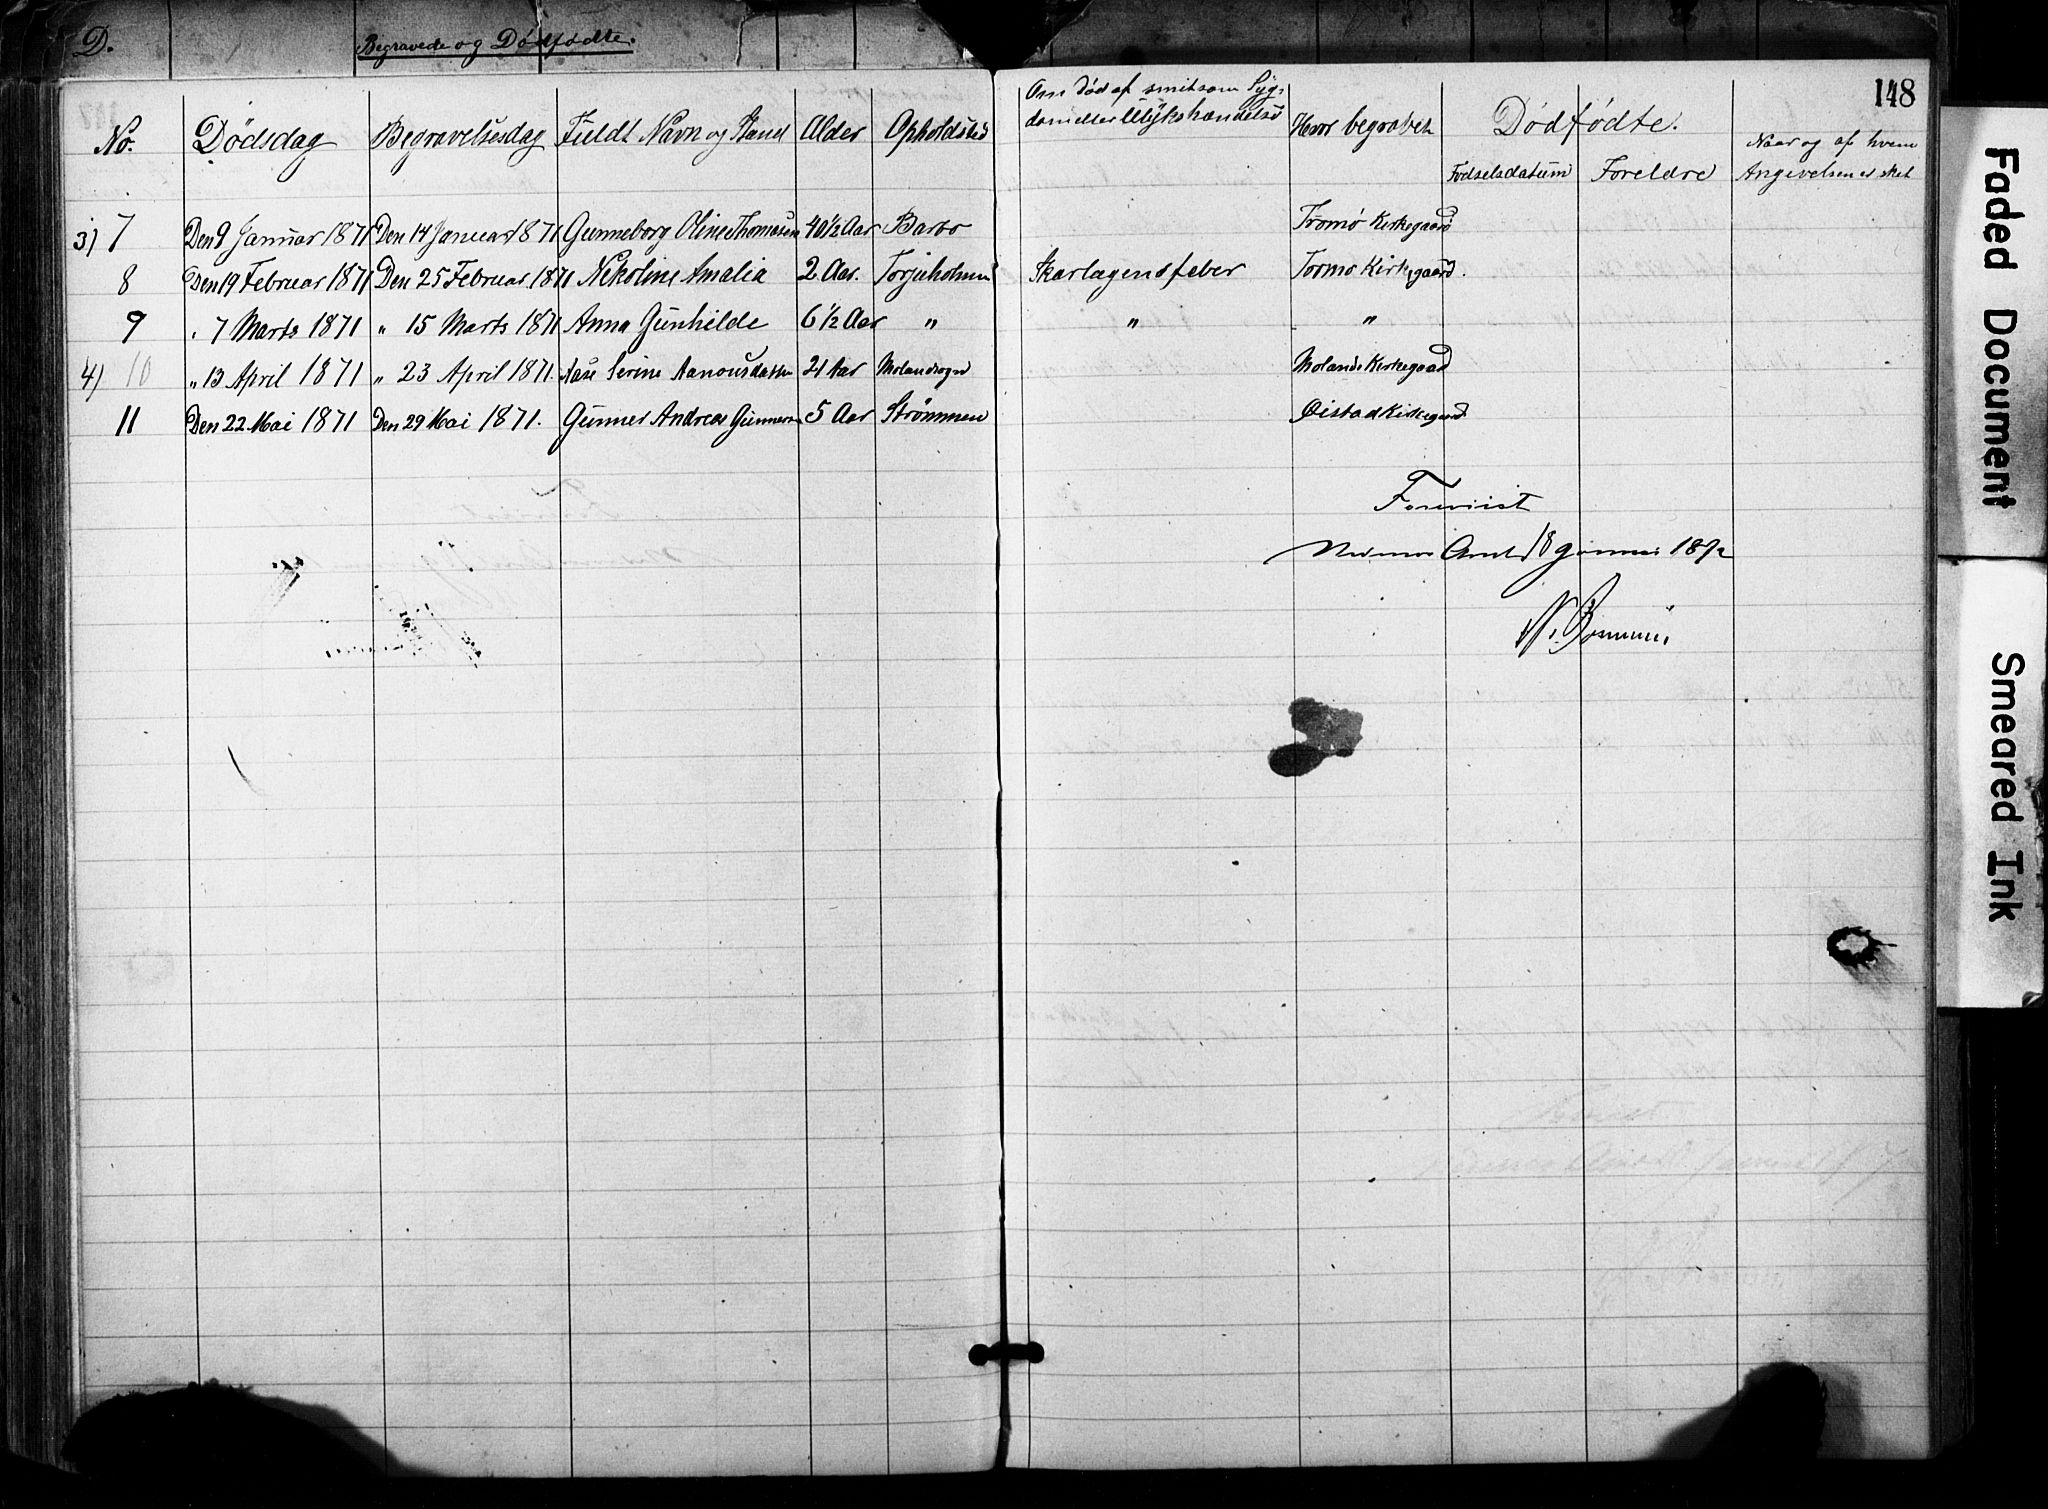 D. Begravede og Dødfødte.
148
No. Dødsdag Begravelsesdag Fuldt Navn og Stand Alder Opholdsted Om død af smitsom Syg-
dom eller Ulykshændelse Hvor begravet Dødfødte.
Fødselsdatum Foreldre Naar og af hvem
Angivelsen er sket
3) 7 Den 9 Januar 1871 Den 14 Januar 1871 Gunneborg Oline Thomasen 40 1/2 Aar Barbo Tromø Kirkegaard
8 Den 19 Februar 1871 Den 25 Februar 1871 Nekoline Amalia 2 Aar. Torjusholmen Skarlagensfeber Tromø Kirkegaard.
9 " 7 Marts 1871 " 15 Marts 1871 Anna Gunhilde 6 1/2 Aar " " "
4) 10 " 13 April 1871 " 23 April 1871. Aase Serine Aanonsdatter 21 Aar Molandsogn Molands Kirkegaard
11 Den 22 Mai 1871 Den 29 Mai 1871. Gunner Andreas Gunnersen 5 Aar Strømmen Øistad Kirkegaard
Foreviist
Nedenes Amt 18 Januar 1872
Faded Document
Smeared Ink